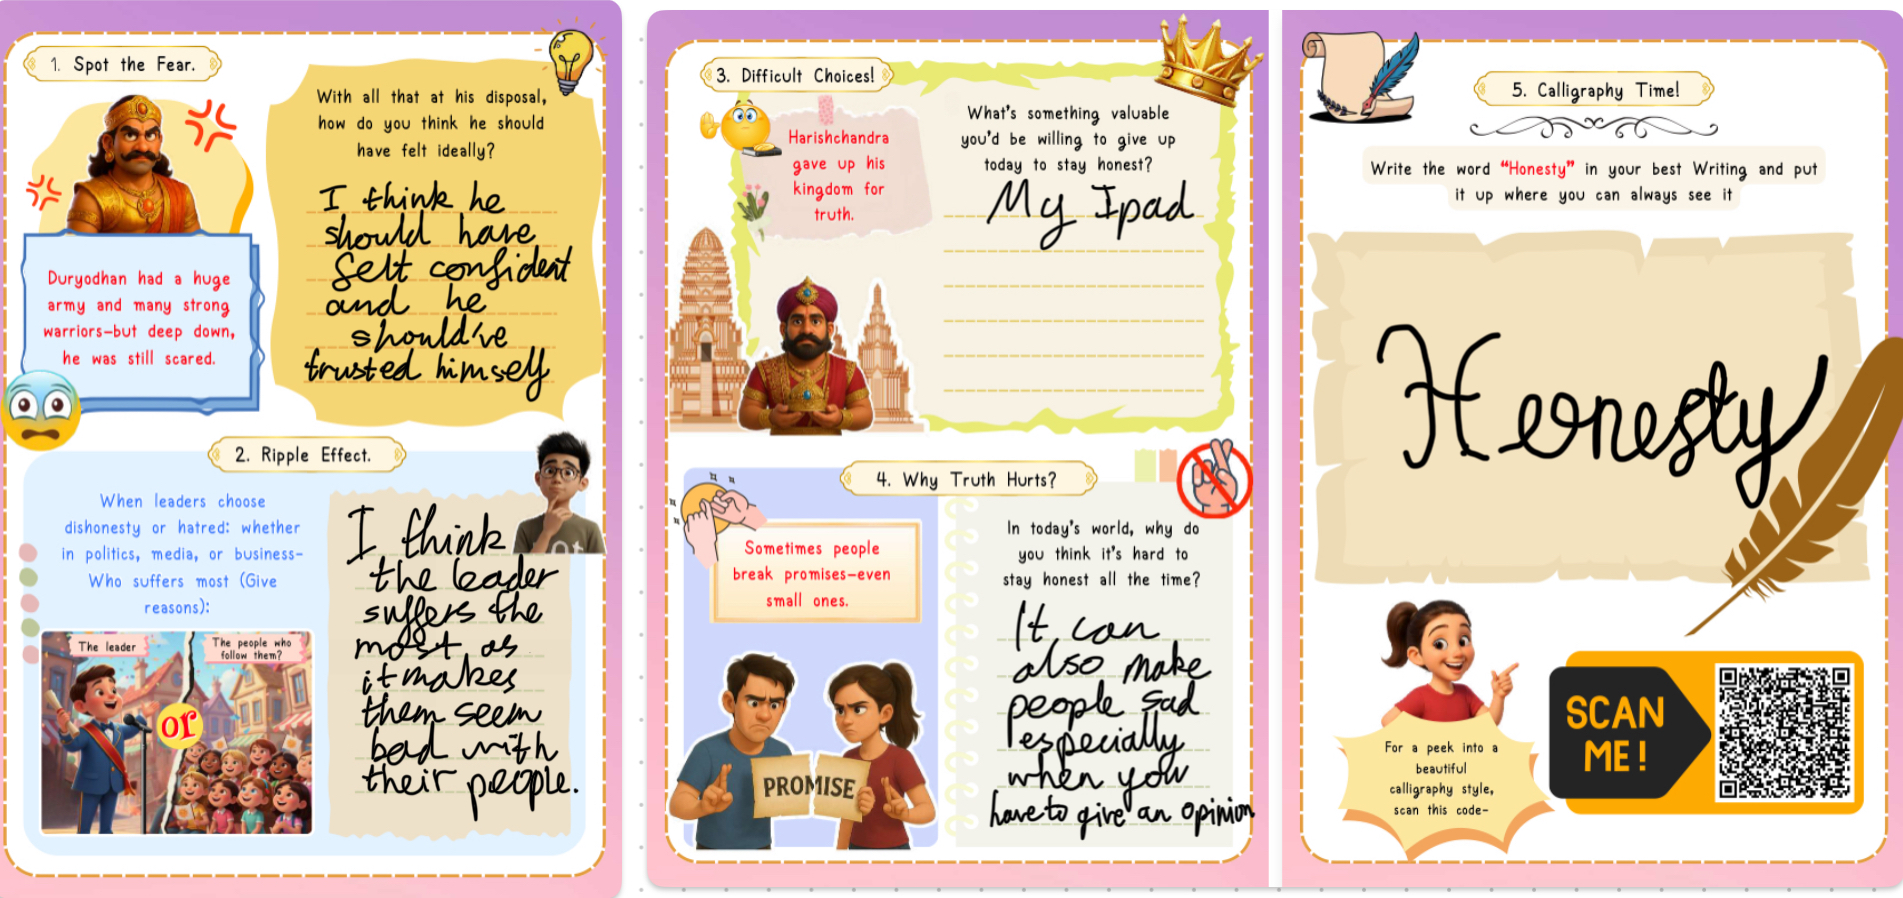 1. Spot the Fear.
With all that at his disposal,
how do you think he should
have felt ideally?
I think he
should have
felt confident
and he
should've
trusted himself
Duryodhan had a huge
army and many strong
warriors–but deep down,
he was still scared.
2. Ripple Effect.
When leaders choose
dishonesty or hatred: whether
in politics, media, or business–
Who suffers most (Give
reasons):
The leader
or
The people who
follow them?
I think
the leader
suffers the
most as
it makes
them seem
bad with
their people.
3. Difficult Choices!
Harishchandra
gave up his
kingdom for
truth.
What's something valuable
you'd be willing to give up
today to stay honest?
My Ipad
4. Why Truth Hurts?
Sometimes people
break promises–even
small ones.
PROMISE
In today's world, why do
you think it's hard to
stay honest all the time?
It can
also make
people sad
especially
when you
have to give an opinion
5. Calligraphy Time!
Write the word "Honesty" in your best Writing and put
it up where you can always see it
Honesty
For a peek into a
beautiful
calligraphy style,
scan this code-
SCAN
ME!